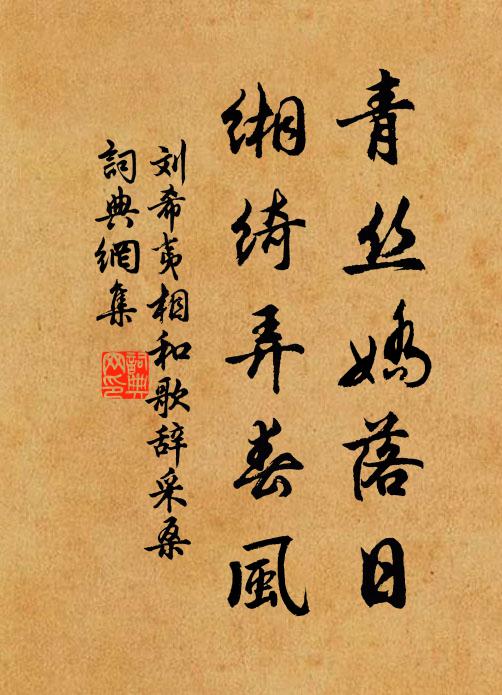 青丝娇落日
缃绮弄春风
刘希夷相和歌辞采桑
詞典網集
詞典网印